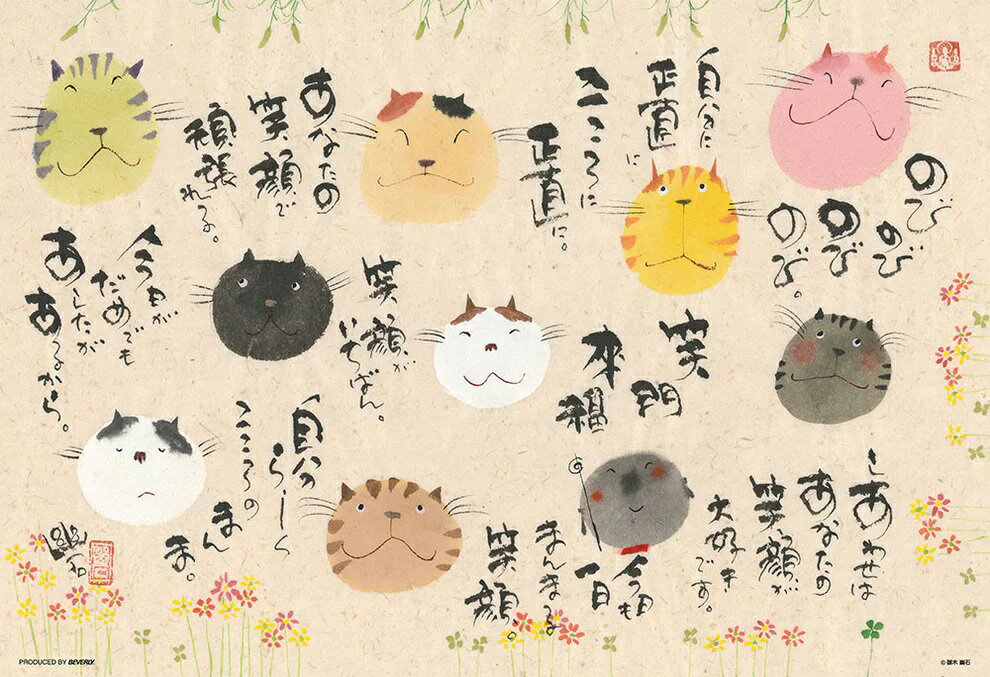 のび
のび
のび
のび。
自分に
正直に
こころに
正直に。
あなたの
笑顔で
頑張れる。
笑門
来福
笑顔が
いちばん。
今日が
だめでも
あしたが
あるから。
しあわせは
あなたの
笑顔が
大好き
です。
今日も
一日
まんまる
笑顔。
自分
らしく
こころの
まん
ま。
PRODUCED BY BEVERLY.
© 御木 幽石